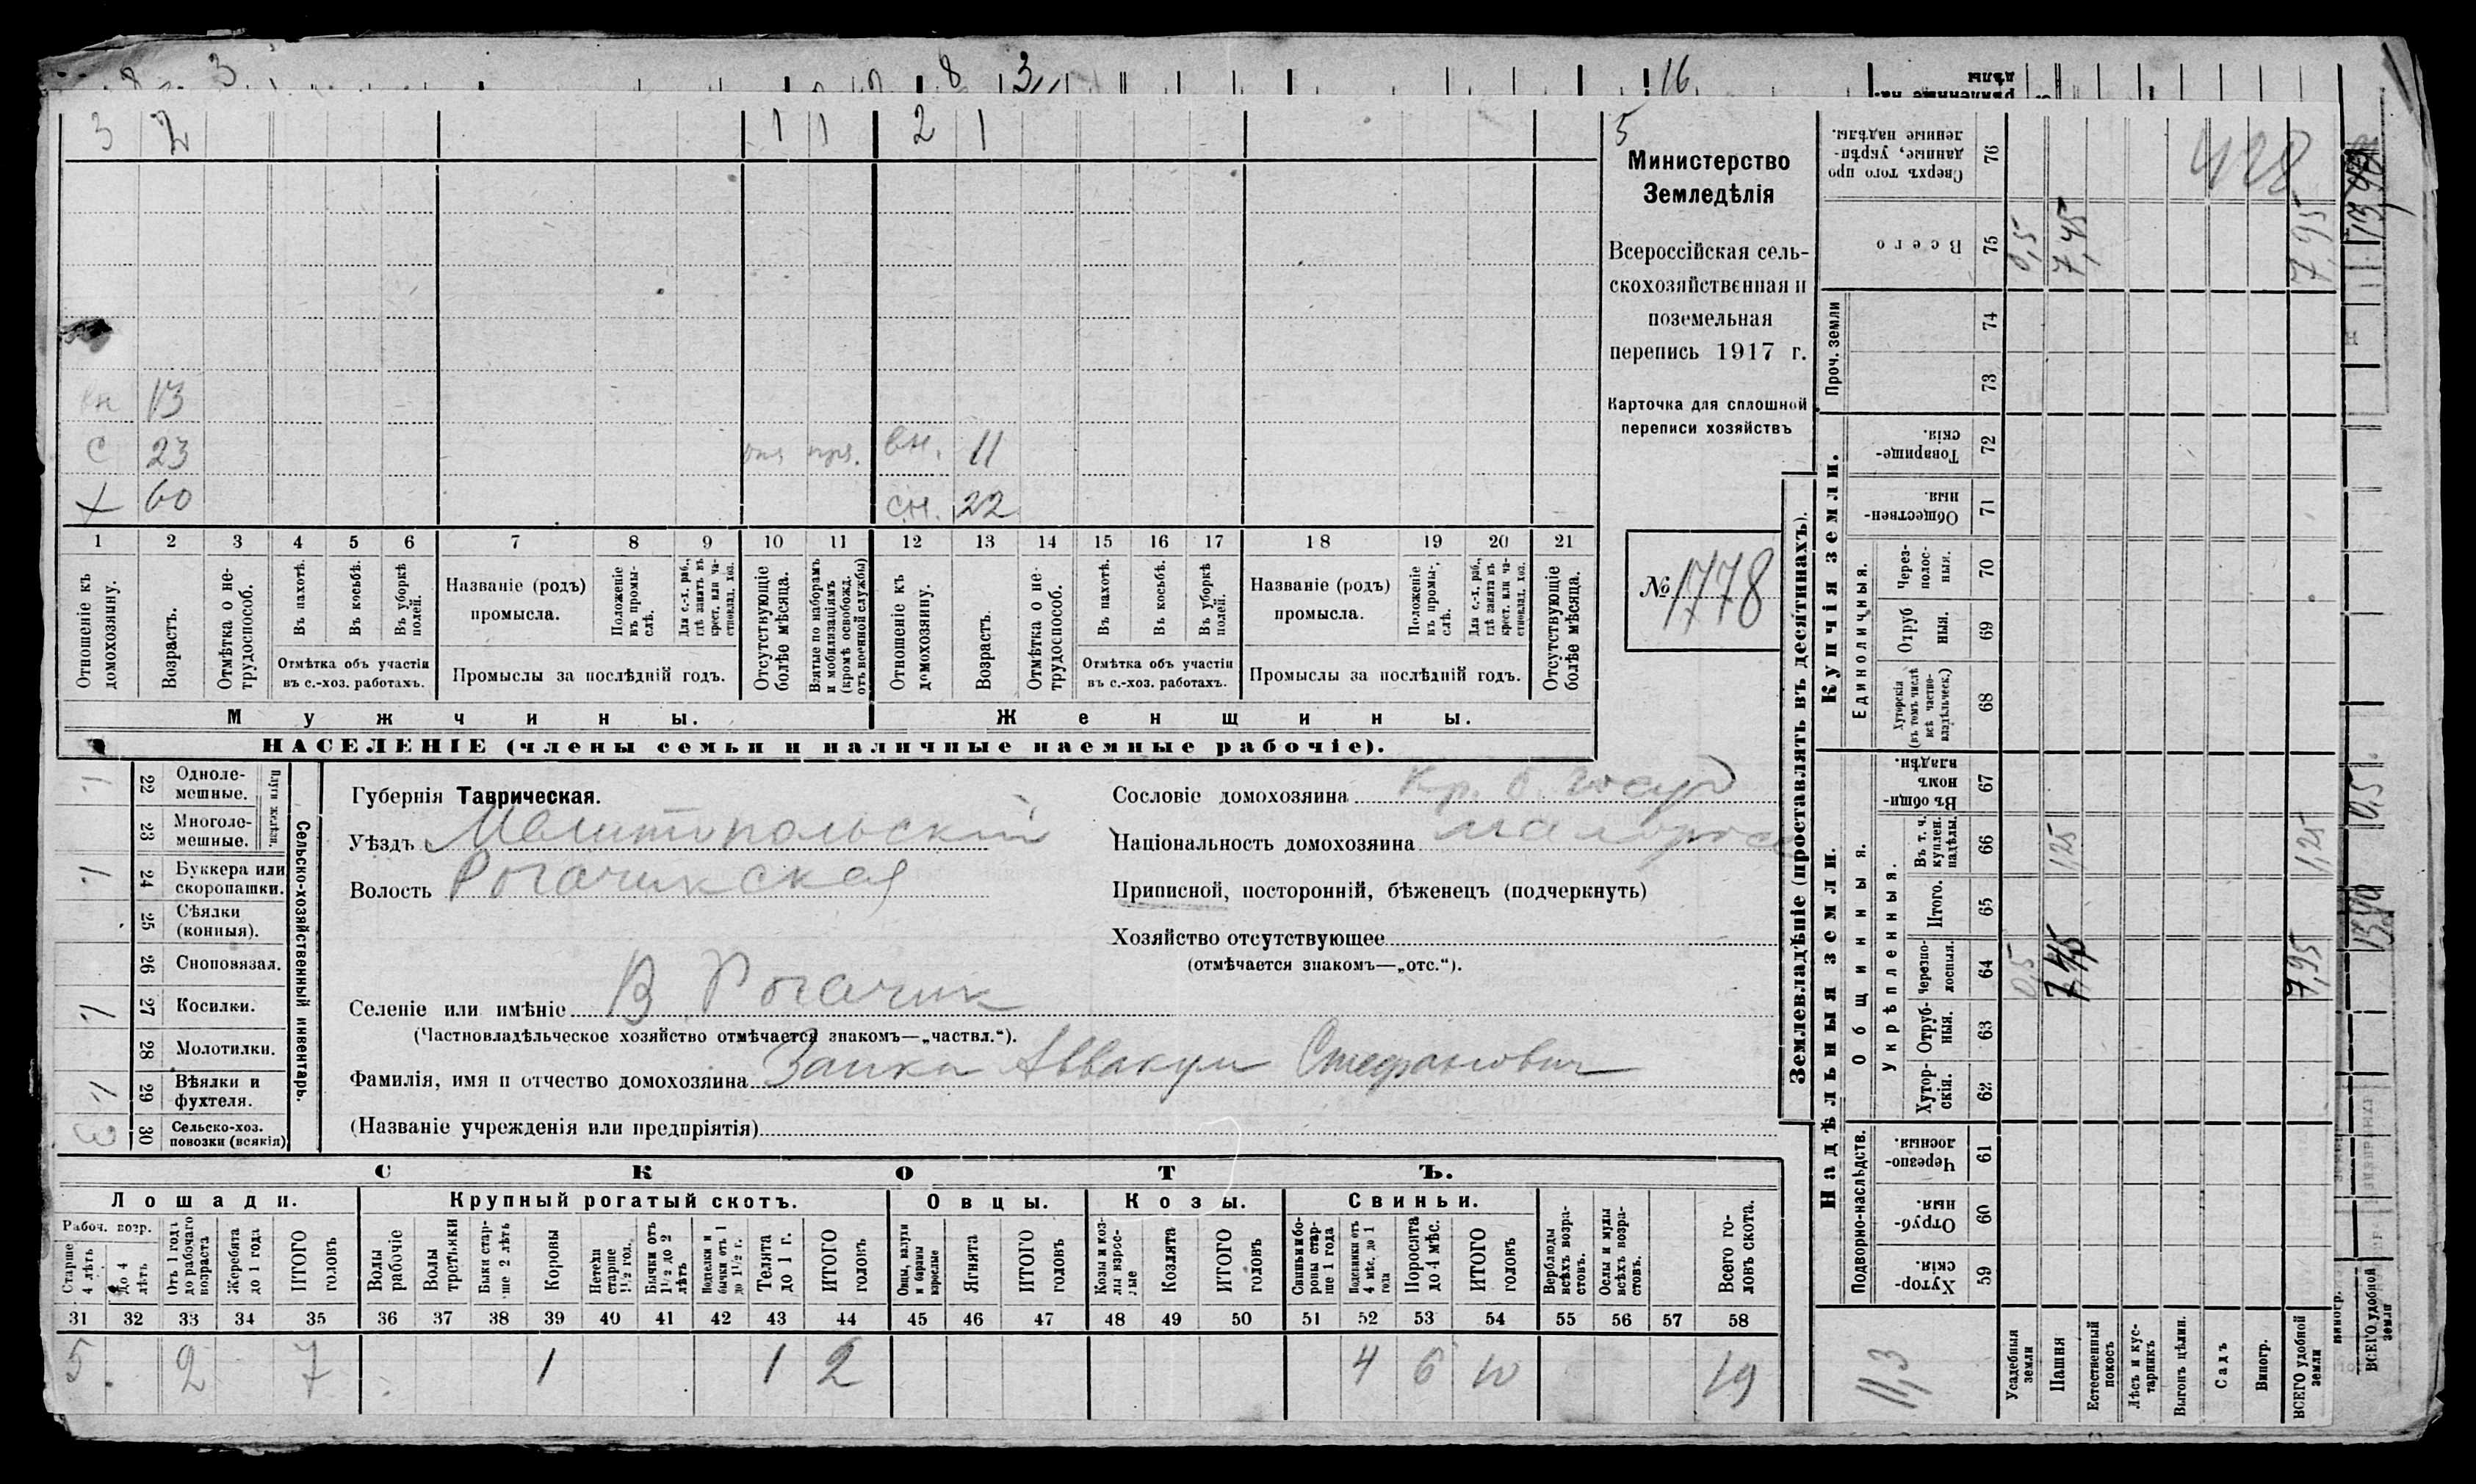 8 3 8 3 16
3 2 1 1 2 1 5
кн 13
С 23 отс пр. вн. 11
х 60 сн. 22
1 2 3 4 5 6 7 8 9 10 11 12 13 14 15 16 17 18 19 20 21
Отношеніе къ домохозяину.
Возрастъ.
Отмѣтка о нетрудоспособ.
Въ пахотѣ.
Въ косьбѣ.
Въ уборкѣ полей.
Отмѣтка объ участіи
въ с.-хоз. работахъ.
Названіе (родъ)
промысла.
Положеніе въ промыслѣ.
Для с.-х. раб., гдѣ занятъ въ крест. или частновлад. хоз.
Промыслы за послѣдній годъ.
Отсутствующіе болѣе мѣсяца.
Взятые по наборамъ и мобилизаціямъ (кромѣ освобожд. отъ военной службы)
Отношеніе къ домохозяину.
Возрастъ.
Отмѣтка о нетрудоспособ.
Въ пахотѣ.
Въ косьбѣ.
Въ уборкѣ полей.
Отмѣтка объ участіи
въ с.-хоз. работахъ.
Названіе (родъ)
промысла.
Положеніе въ промы-, слѣ.
Для с.-х. раб., гдѣ занята въ крест. или частновлад. хоз.
Промыслы за послѣдній годъ.
Отсутствующіе болѣе мѣсяца.
Мужчины. Женщины.
НАСЕЛЕНІЕ (члены семьи и наличные наемные рабочіе).
Министерство
Земледѣлія
Всероссійская сель-
скохозяйственная и
поземельная
перепись 1917 г.
Карточка для сплошной
переписи хозяйствъ
№ 1778
1 22 Одноле-
мешные.
23 Многоле-
мешные.
Плуги желѣзн.
1 24 Буккера или
скоропашки.
25 Сѣялки
(конныя).
26 Сноповязал.
1 27 Косилки.
28 Молотилки.
1 29 Вѣялки и
фухтеля.
3 30 Сельско-хоз.
повозки (всякія)
Сельско-хозяйственный инвентарь.
Губернія Таврическая.
Уѣздъ Мелитопольскій
Волость Рогачикская
Селеніе или имѣніе В Рогачик
(Частновладѣльческое хозяйство отмѣчается знакомъ—„частвл.“).
Фамилія, имя и отчество домохозяина Заика Аввакум Стефанович
(Названіе учрежденія или предпріятія)
Сословіе домохозяина кр. б. госуд
Національность домохозяина малорос
Приписной, посторонній, бѣженецъ (подчеркнуть)
Хозяйство отсутствующее
(отмѣчается знакомъ—„отс.“).
СКОТЪ.
Лошади. Крупный рогатый скотъ. Овцы. Козы. Свиньи.
Рабоч. возр.
Старше 4 лѣтъ
До 4 лѣтъ
Отъ 1 года до рабочаго возраста
Жеребята до 1 года
ИТОГО головъ
Волы рабочіе
Волы третьяки
Быки старше 2 лѣтъ
Коровы
Нетели старше 1½ год.
Бычки отъ 1½ до 2 лѣтъ
Подтелки и бычки отъ 1 до 1½ г.
Телята до 1 г.
ИТОГО головъ
Овцы, валухи и бараны взрослые
Ягнята
ИТОГО головъ
Козы и козлы взрослые
Козлята
ИТОГО головъ
Свиньи и боровы старше 1 года
Подсвинки отъ 4 мѣс. до 1 года
Поросята до 4 мѣс.
ИТОГО головъ
Верблюды всѣхъ возрастовъ.
Ослы и мулы всѣхъ возрастовъ.
Всего головъ скота.
31 32 33 34 35 36 37 38 39 40 41 42 43 44 45 46 47 48 49 50 51 52 53 54 55 56 57 58
5 2 7 1 1 2 4 6 10 19
Землевладѣніе (проставлять въ десятинахъ).
Надѣльныя земли. Купчія земли. Проч. земли
Подворно-наслѣдств.
Общинныя.
Укрѣпленныя.
Единоличныя.
Хуторскія. 59
Отрубныя. 60
Черезполосныя. 61
Хуторскія. 62
Отрубныя. 63
Черезполосныя. 64
Итого. 65
Въ т. ч. куплен. надѣлы. 66
Въ общиномъ владѣн. 67
Хуторскія (въ томъ числѣ всѣ частновладѣльческ.) 68
Отрубныя. 69
Черезполосныя. 70
Общественныя. 71
Товарищескія. 72
73
74
Всего 75
Сверхъ того проданные, укрѣпленные надѣлы. 76
11,3
Усадебныя земли 0,5 0,5
Пашня 7,45 1,25 7,45
Естественный покосъ
Лѣсъ и кустарникъ
Выгонъ цѣлин.
Садъ
Виногр.
ВСЕГО удобной земли 7,95 1,25 7,95
428
виногр.
ВСЕГО удобной земли 0,5